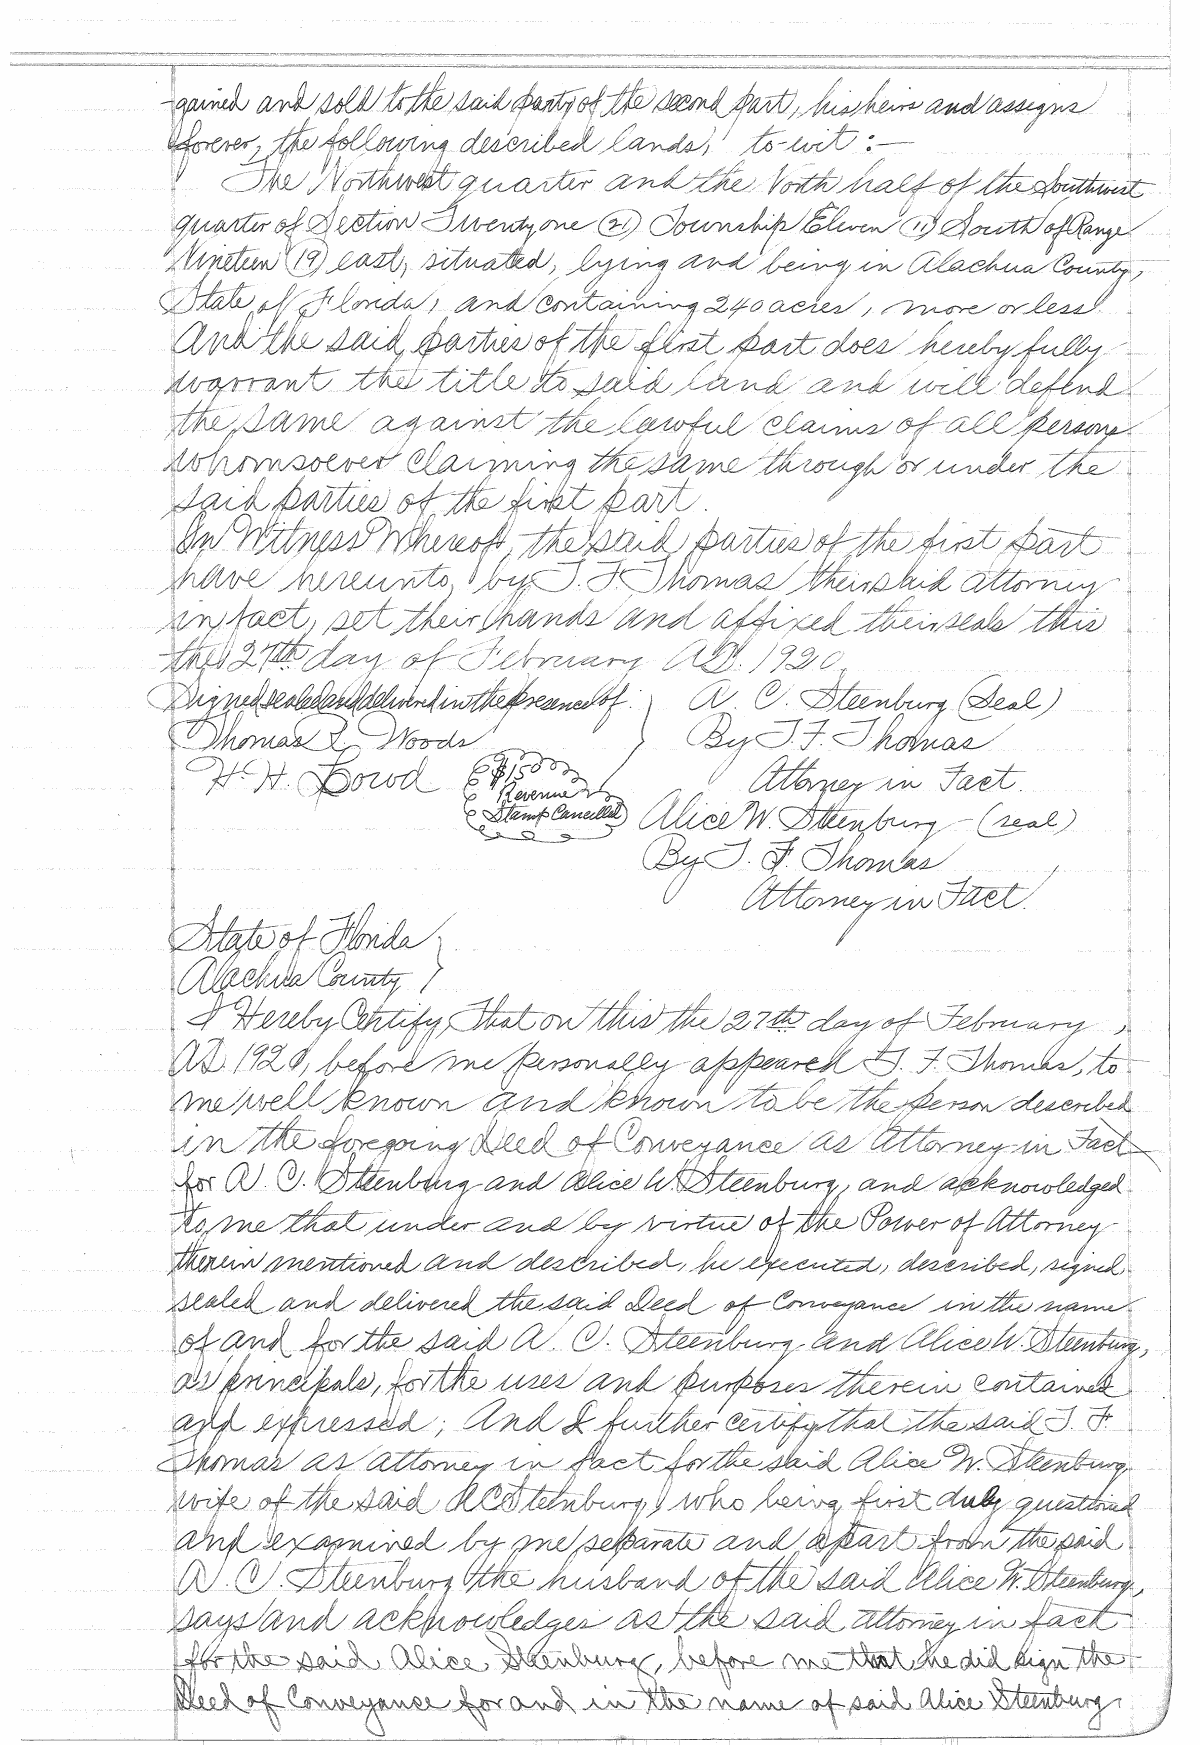 -gained and sold to the said party of the second part, his heirs and assigns
forever, the following described lands, to-wit :—
The Northwest quarter and the North half of the Southwest
quarter of Section Twenty one (21) Township Eleven (11) South of Range
Nineteen (19) east, situated, lying and being in Alachua County,
State of Florida, and containing 240 acres, more or less.
And the said parties of the first part does hereby fully
warrant the title to said land and will defend
the same against the lawful claims of all persons
whomsoever claiming the same through or under the
said parties of the first part.
In Witness Whereof, the said parties of the first part
have hereunto, by T. F. Thomas their said attorney
in fact, set their hands and affixed their seals this
the 27th day of February A.D. 1920.
Signed sealed and delivered in the presence of: A. C. Steenburg (Seal)
Thomas L. Woods By T. F. Thomas
H. H. Attorney in Fact.
$15 00
Revenue
Stamp Cancelled Alice W. Steenburg (seal)
By T. F. Thomas
Attorney in Fact.
State of Florida
Alachua County
I Hereby Certify, That on this the 27th day of February,
A.D. 1920, before me personally appeared T. F. Thomas, to
me well known and known to be the person described
in the foregoing Deed of Conveyance as Attorney in Fact
for A. C. Steenburg and Alice W. Steenburg, and acknowledged
to me that under and by virtue of the Power of Attorney
therein mentioned and described, he executed, described, signed
sealed and delivered the said Deed of Conveyance in the name
of and for the said A. C. Steenburg and Alice W. Steenburg,
as principals, for the uses and purposes therein contained
and expressed; And I further certify that the said T. F.
Thomas as attorney in fact for the said Alice W. Steenburg
wife of the said A C Steenburg, who being first duly questioned
and examined by me separate and apart from the said
A. C. Steenburg the husband of the said Alice W. Steenburg,
says and acknowledges as the said attorney in fact
for the said Alice Steenburg, before me that he did sign the
Deed of Conveyance for and in the name of said Alice Steenburg